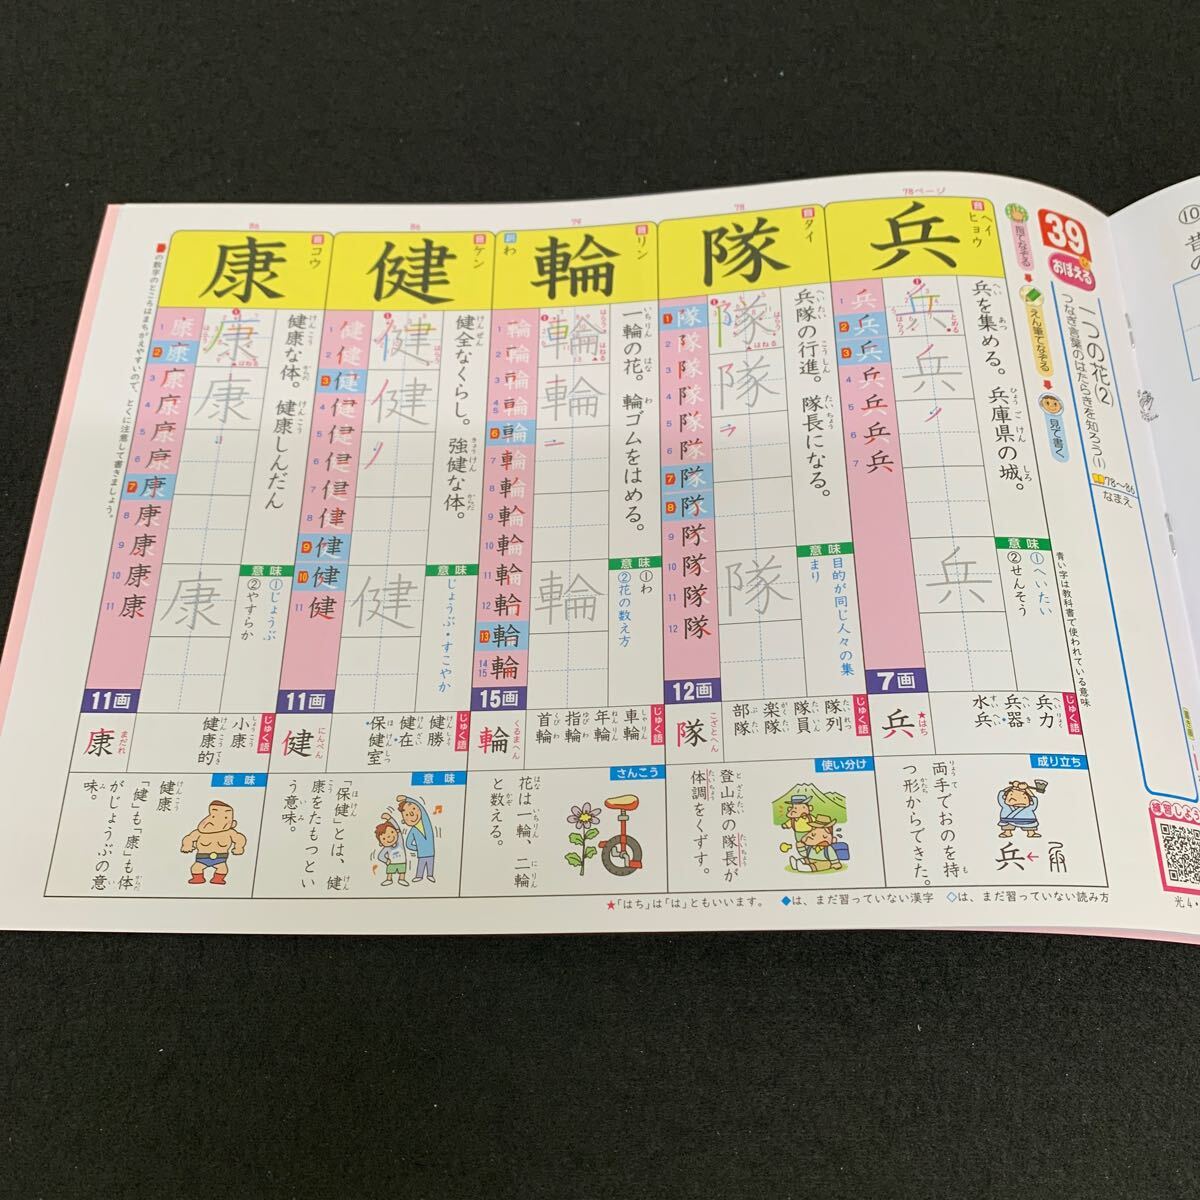 39
おぼえる
一つの花(2)
つなぎ言葉のはたらきを知ろう(1)
78〜86
なまえ
指でなぞる
えん筆でなぞる
見て書く
青い字は教科書で使われている意味
78ページ
兵
音
ヘイ
ヒョウ
兵を集める。兵庫県の城。
意味
①へいたい
②せんそう
7画
兵
★はち
じゅく語
兵力
兵器
水兵
成り立ち
両手でおのを持つ形からできた。
兵
78
隊
音
タイ
兵隊の行進。隊長になる。
意味
目的が同じ人々の集まり
12画
隊
こざとへん
じゅく語
隊列
隊員
楽隊
部隊
使い分け
登山隊の隊長が体調をくずす。
79
輪
音
リン
訓
わ
一輪の花。輪ゴムをはめる。
意味
①わ
②花の数え方
15画
輪
くるまへん
じゅく語
車輪
年輪
指輪
首輪
さんこう
花は一輪、二輪と数える。
86
健
音
ケン
健全なくらし。強健な体。
意味
じょうぶ・すこやか
11画
健
にんべん
じゅく語
健勝
健在
保健室
意味
「保健」とは、健康をたもつという意味。
86
康
音
コウ
健康な体。健康しんだん
意味
①じょうぶ
②やすらか
11画
康
まだれ
小康
健康的
意味
健康
「健」も「康」も体がじょうぶの意味。
の数字のところはまちがえやすいので、とくに注意して書きましょう。
★「はち」は「は」ともいいます。 ◆は、まだ習っていない漢字 ◇は、まだ習っていない読み方
⑩
光4・